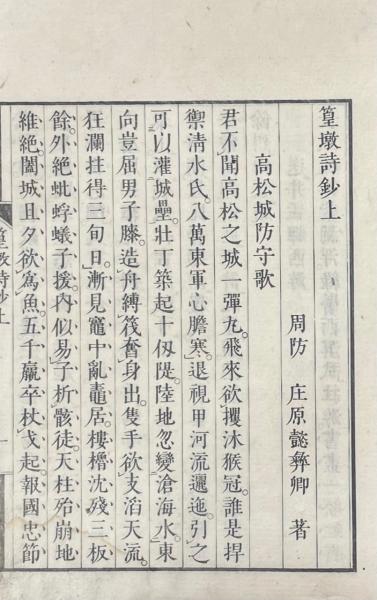 篁墩詩鈔上
周防 庄原懿彝卿 著
高松城防守歌
君不聞高松之城一彈丸。飛來欲攫沐猴冠。誰是捍
禦清水氏。八萬東軍心膽寒。退視甲河流邐迤。引之
可以灌城壘。壯丁築起十仭隄。陸地忽變滄海水。東
向豈屈男子膝。造舟縛筏奮身出。隻手欲支滔天流。
狂瀾拄得三旬日。漸見竈中亂鼃居。樓櫓沈殘三板
餘。外絶蚍蜉蟻子援。內似易子折骸徒。天柱殆崩地
維絶。闔城且夕欲爲魚。五千羸卒杖戈起。報國忠節
篁墩詩鈔上
一